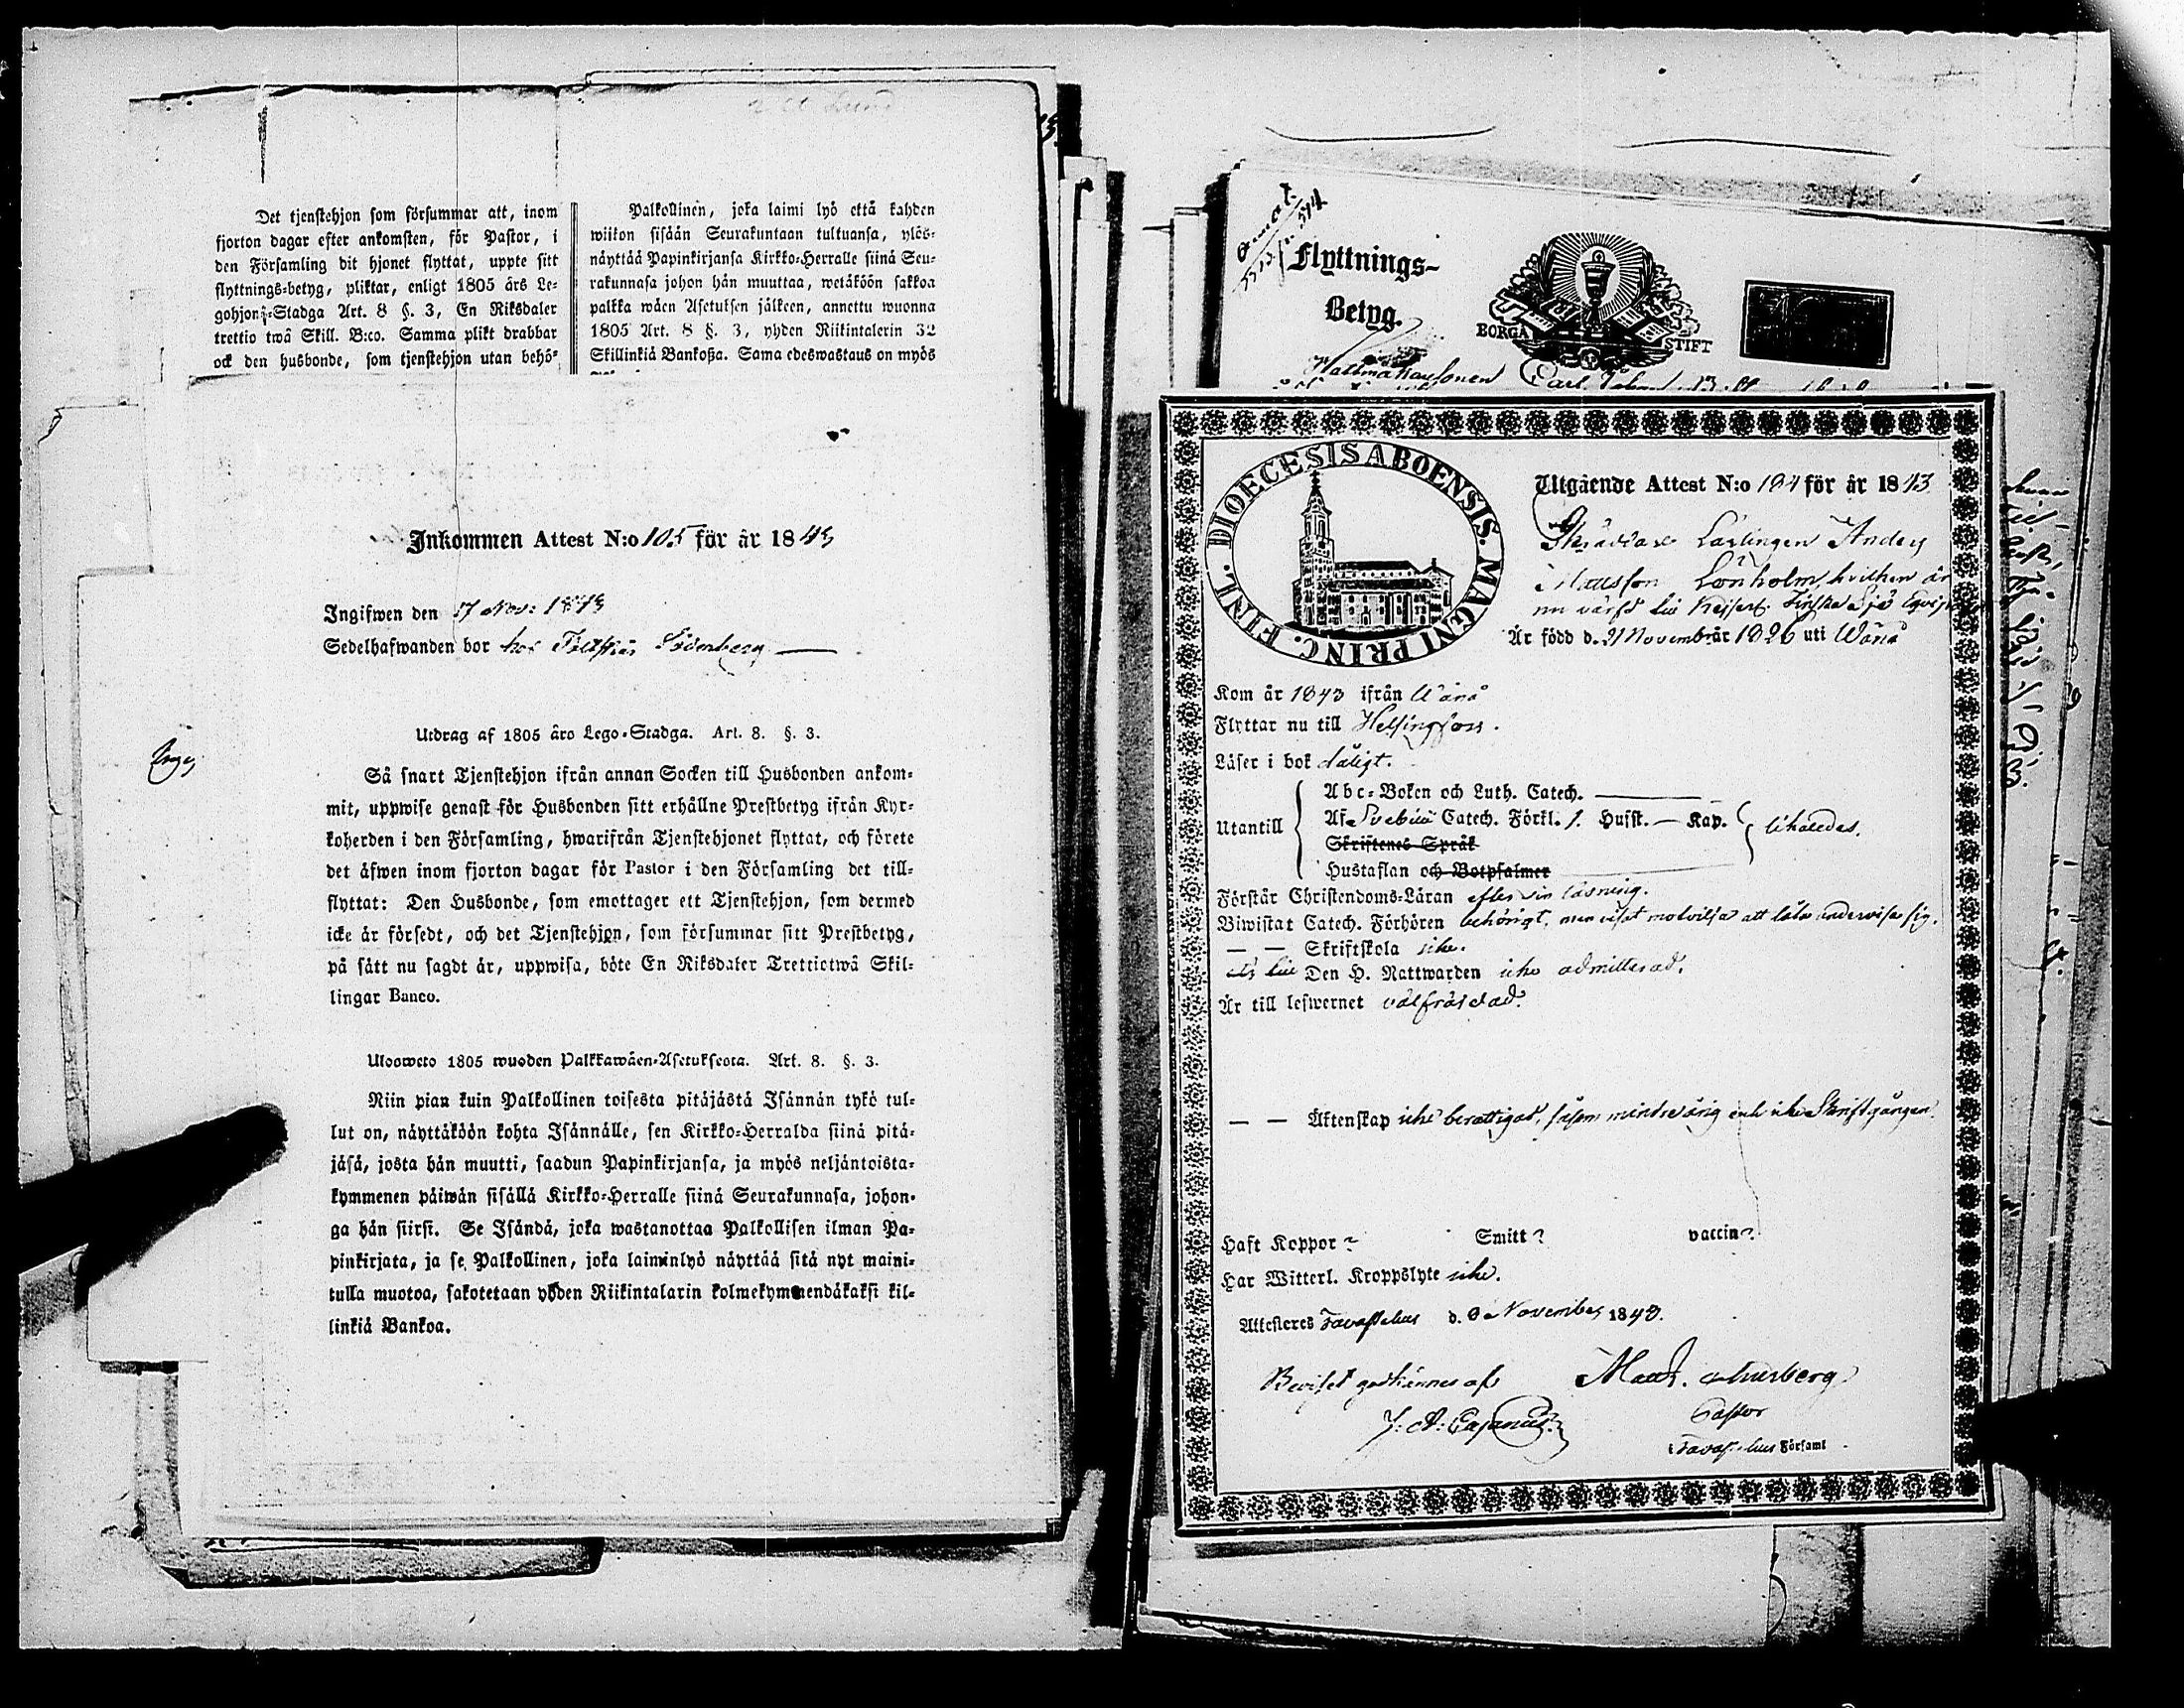 Det tjenstehjon som försummar att, inom
fjorton dagar efter ankomsten, för Pastor, i
den Församling dit hjonet flyttat, uppte sitt
flyttnings-betyg, pliktar, enligt 1805 års Le-
gohjons-Stadga Art. 8 §. 3, En Riksdaler
trettio twå Skill. B:co. Samma plikt drabbar
ock den husbonde, som tjenstehjon utan behö-
Palkollinen, joka laimi lyö että kahden
wiikon sisään Seurakuntaan tultuansa, ylös-
näyttää Papinkirjansa Kirkko-Herralle siinä Seu-
rakunnasa johon hän muuttaa, wetäköön sakkoa
palkka wäen Asetuksen jälkeen, annettu wuonna
1805 Art. 8 §. 3, yhden Riikintalerin 32
Skillinkiä Bankoßa. Sama edeswastaus on myös
Inkommen Attest N:o 105 för år 1843
Ingifwen den 17 Nov: 1843
Sedelhafwanden bor hos
Utdrag af 1805 års Lego-Stadga. Art. 8. §. 3.
Så snart Tjenstehjon ifrån annan Socken till Husbonden ankom-
mit, uppwise genast för Husbonden sitt erhållne Prestbetyg ifrån Kyr-
koherden i den Församling, hwarifrån Tjenstehjonet flyttat, och förete
det äfwen inom fjorton dagar för Pastor i den Församling det till-
flyttat: Den Husbonde, som emottager ett Tjenstehjon, som dermed
icke är försedt, och det Tjenstehjon, som försummar sitt Prestbetyg,
på sätt nu sagdt är, uppwisa, böte En Riksdaler Trettiotwå Skil-
lingar Banco.
Ulosweto 1805 wuoden Palkkawäen-Asetuksesta. Art. 8. §. 3.
Niin pian kuin Palkollinen toisesta pitäjästä Isännän tykö tul-
lut on, näyttäköön kohta Isännälle, sen Kirkko-Herralda siinä pitä-
jäsä, josta hän muutti, saadun Papinkirjansa, ja myös neljäntoista-
kymmenen päiwän sisällä Kirkko-Herralle siinä Seurakunnasa, johon-
ga hän siirsi. Se Isändä, joka wastanottaa Palkollisen ilman Pa-
pinkirjata, ja se Palkollinen, joka laiminlyö näyttää sitä nyt maini-
tulla muotoa, sakotetaan yhden Riikintalarin kolmekymmendäkaksi kil-
linkiä Bankoa.
Flyttnings-
Betyg.
BORGÅ STIFT
Carl
DIOECESIS ABOENSIS. MAGNI PRINC. FINL.
Utgående Attest N:o 184 för år 1843
Skräddare Lärlingen Anders
Mattsson Lönholm hvilken är
nu värfd till Kejserl. Finska Sjö Equipaget
Är född d. 21 November år 1826 uti Wånå
Kom år 1843 ifrån Wånå
Flyttar nu till Helsingfors.
Läser i bok dåligt.
Utantill
Abc-Boken och Luth. Catech.
Af Svebilii Catech. Förkl. Husst. — Kap. likaledes.
Skriftenes Språk
Hustaflan och Botpsalmer
Förstår Christendoms-Läran efter sin läsning.
Biwistat Catech. Förhören behörigt, men visat motvilja att låta undervisa sig.
— — Skriftskola icke.
till Den H. Nattwarden icke admitterad.
Är till lefwernet välfräjdad.
— — Äktenskap icke berättigad, såsom minderårig och icke Skriftgången.
Haft Koppor? Smitt? vaccin?
Har Witterl. Kroppslyte icke.
Attesteres Tavastehus d. 8 November 1843.
Beviset godkännes af
J. A. Cajanus.
Matt.
Pastor
i Tavastehus Församl.